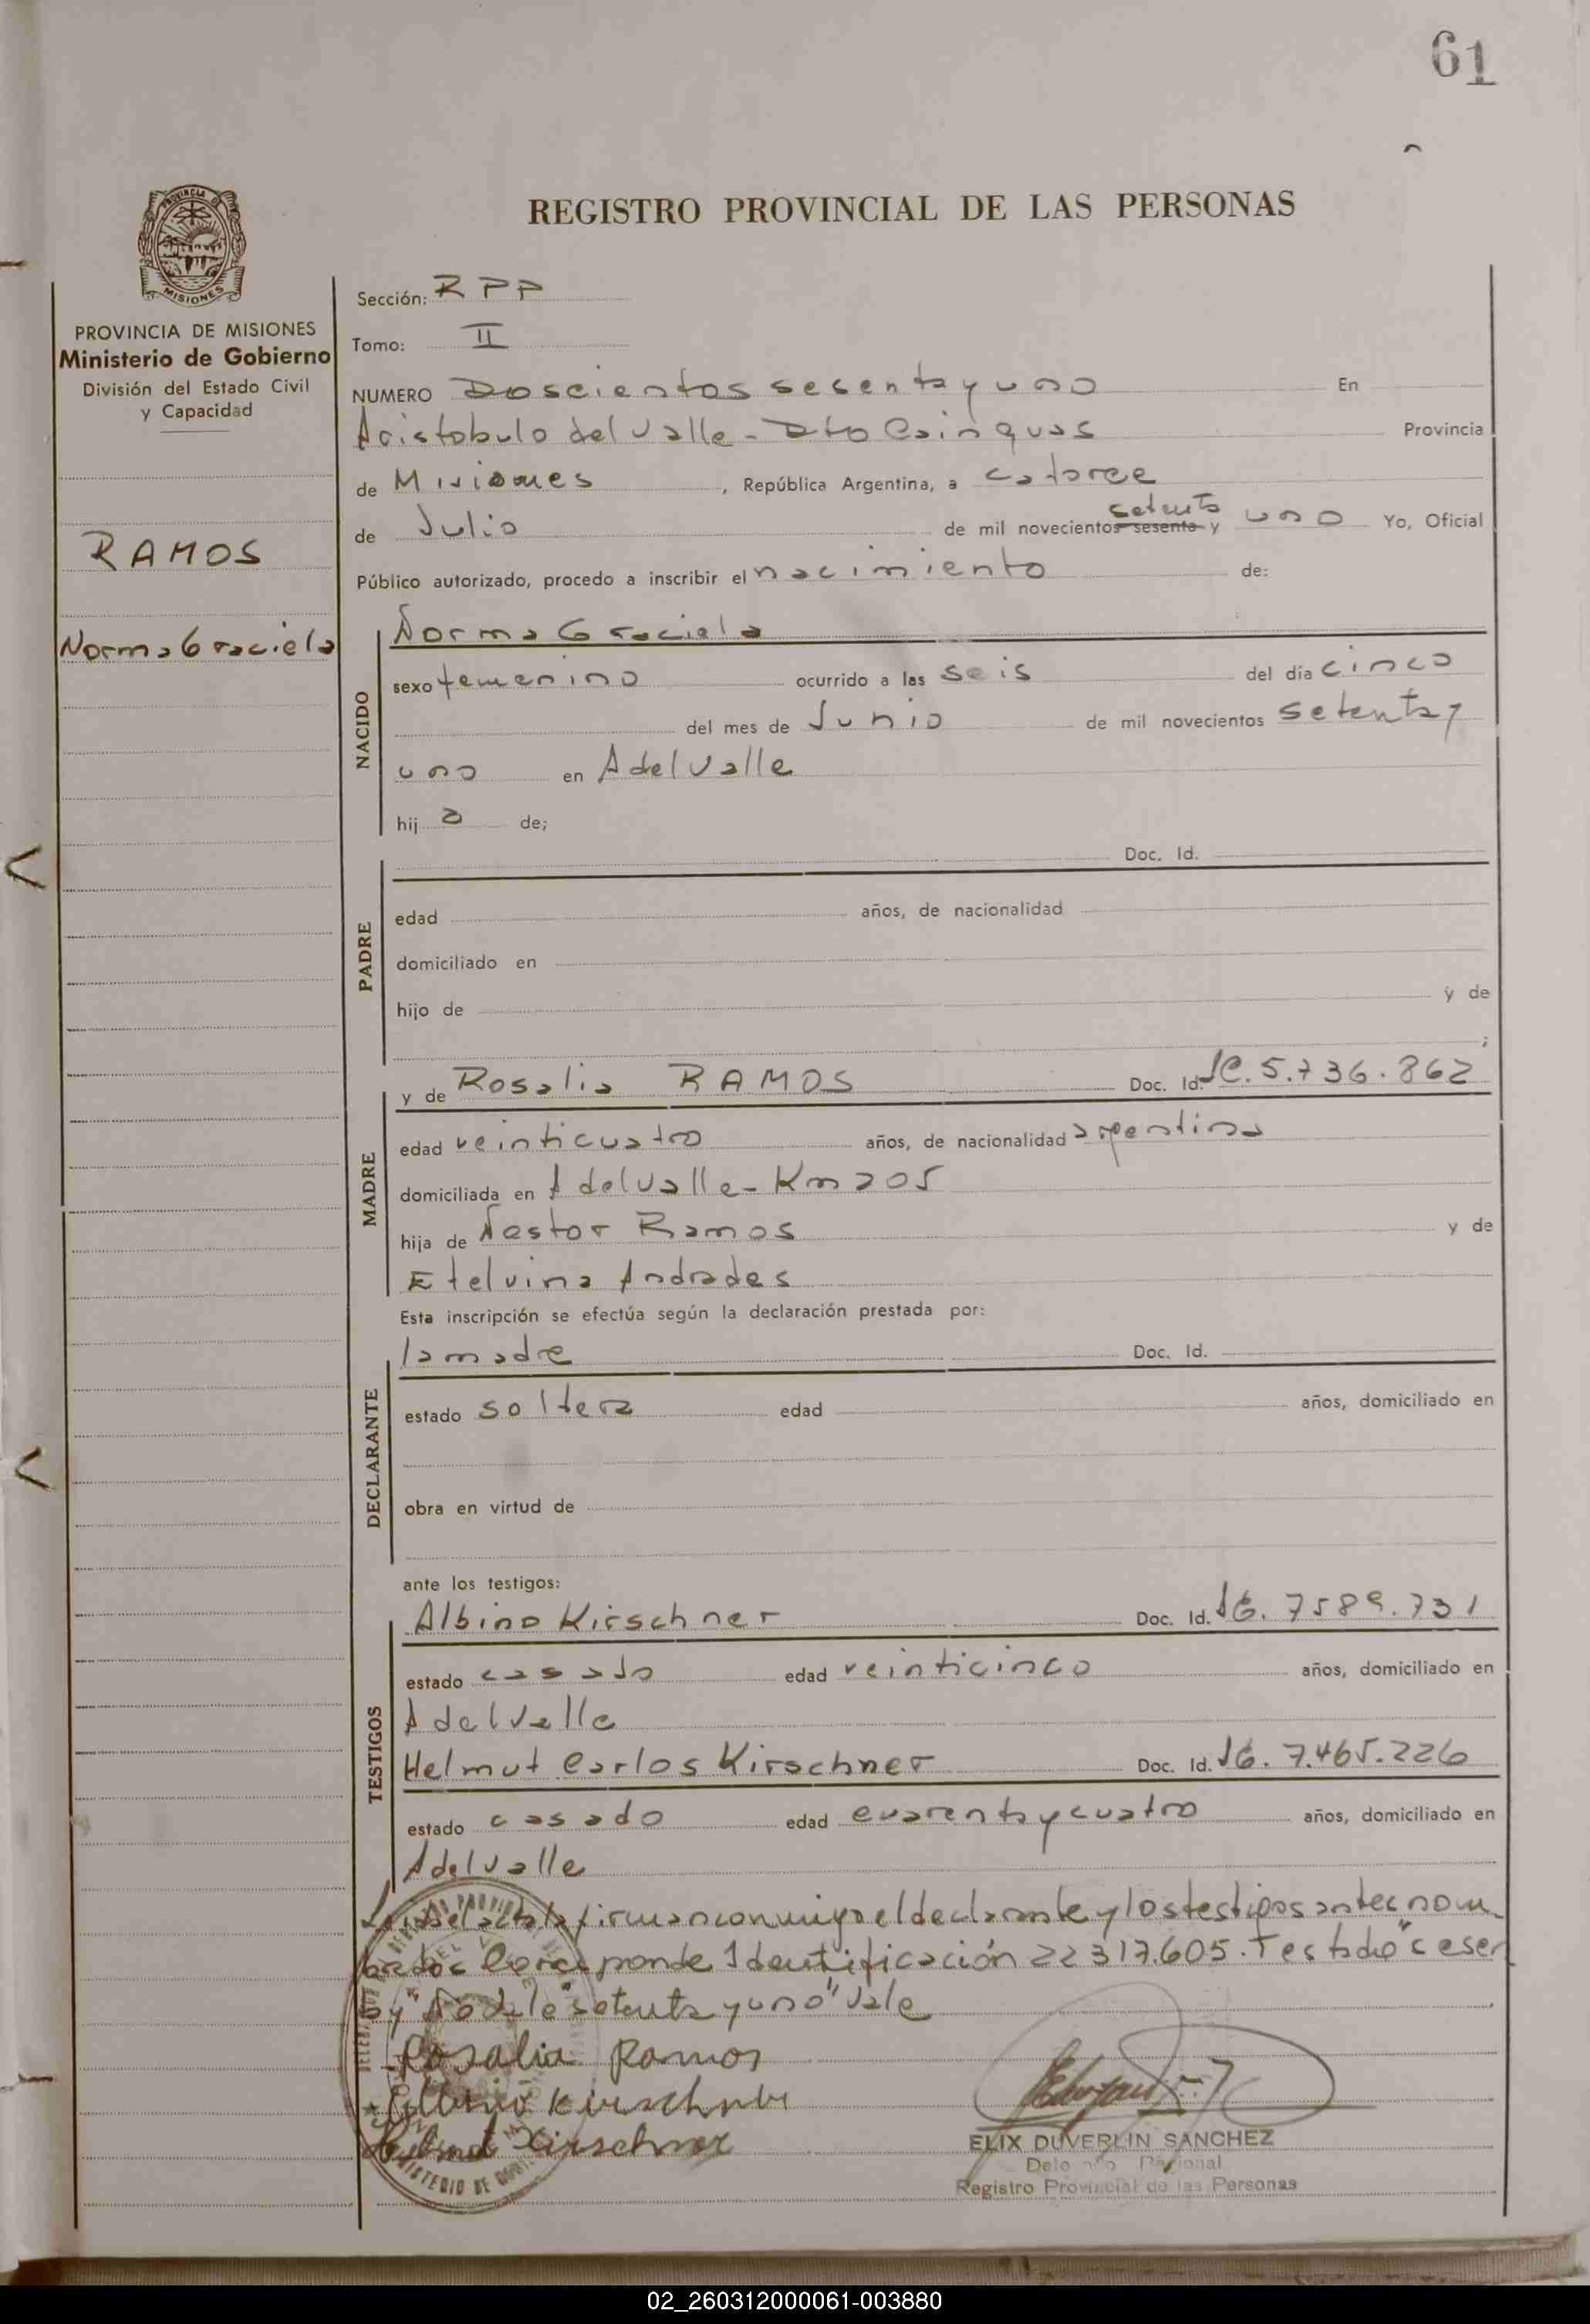 61
REGISTRO PROVINCIAL DE LAS PERSONAS
PROVINCIA DE MISIONES
Ministerio de Gobierno
División del Estado Civil
y Capacidad
RAMOS
Norma Graciela
Sección: RPP
Tomo: II
NUMERO Doscientos sesenta y uno En
Aristobulo del Valle - Dto Cainguas Provincia
de Misiones, República Argentina, a catorce
setenta
de Julio de mil novecientos sesenta y uno Yo, Oficial
Público autorizado, procedo a inscribir el nacimiento de:
NACIDO
Norma Graciela
sexo femenino ocurrido a las seis del día cinco
del mes de Junio de mil novecientos setenta y
uno en A del Valle
hij a de;
PADRE
Doc. Id.
edad años, de nacionalidad
domiciliado en
hijo de y de
;
MADRE
y de Rosalia RAMOS Doc. Id. 5.736.862
edad veinticuatro años, de nacionalidad argentina
domiciliada en A del Valle - Km 205
hija de Nestor Ramos y de
Etelvina Andrades
Esta inscripción se efectúa según la declaración prestada por:
DECLARANTE
la madre Doc. Id.
estado soltera edad años, domiciliado en
obra en virtud de
ante los testigos:
TESTIGOS
Albino Kirschner Doc. Id. 7589.731
estado casado edad veinticinco años, domiciliado en
A del Valle
Helmut Carlos Kirschner Doc. Id. 7.465.226
estado casado edad cuarenta y cuatro años, domiciliado en
A del Valle
el acta la firman conmigo el declarante y los testigos antes nom
brados Corresponde Identificación 22317.605. Testado
setenta y uno" Vale
Rosalia Ramos
Albino Kirschner
Helmut Kirschner
ELIX DUVERLIN SANCHEZ
Registro Provincial de las Personas
02_260312000061-003880